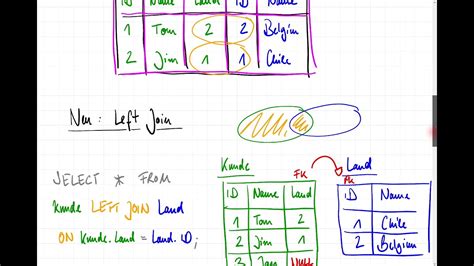 ID Name Land ID Name
1 Tom 2 2 Belgien
2 Jim 1 1 Chile
Neu: Left Join
SELECT * FROM
Kunde LEFT JOIN Land
ON Kunde.Land = Land.ID;
Kunde
FK
ID Name Land
1 Tom 2
2 Jim 1
3 Jan NULL
Land
PK
ID Name
1 Chile
2 Belgien